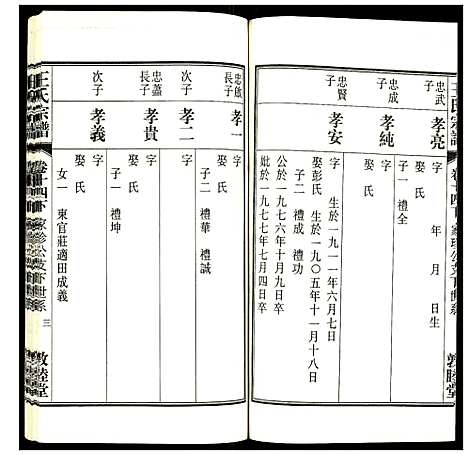 王氏宗譜
卷十四下
敦睦堂
忠武子
孝亮
字 年 月 日生
娶 氏
子一 禮全
忠成子
孝純
字
娶 氏
忠賢子
孝安
字 生於一九一一年六月七日
娶彭氏 生於一九〇五年十一月十八日
子二 禮成 禮功
公於一九七六年十月九日卒
妣於一九七七年七月四日卒
忠啟長子
孝一
字
娶 氏
子二 禮華 禮誠
次子
孝二
字
忠藎長子
孝貴
字
娶 氏
子一 禮坤
次子
孝義
字
娶 氏
女一 東官莊適田成義
王氏宗譜
卷十四下
三
敦睦堂